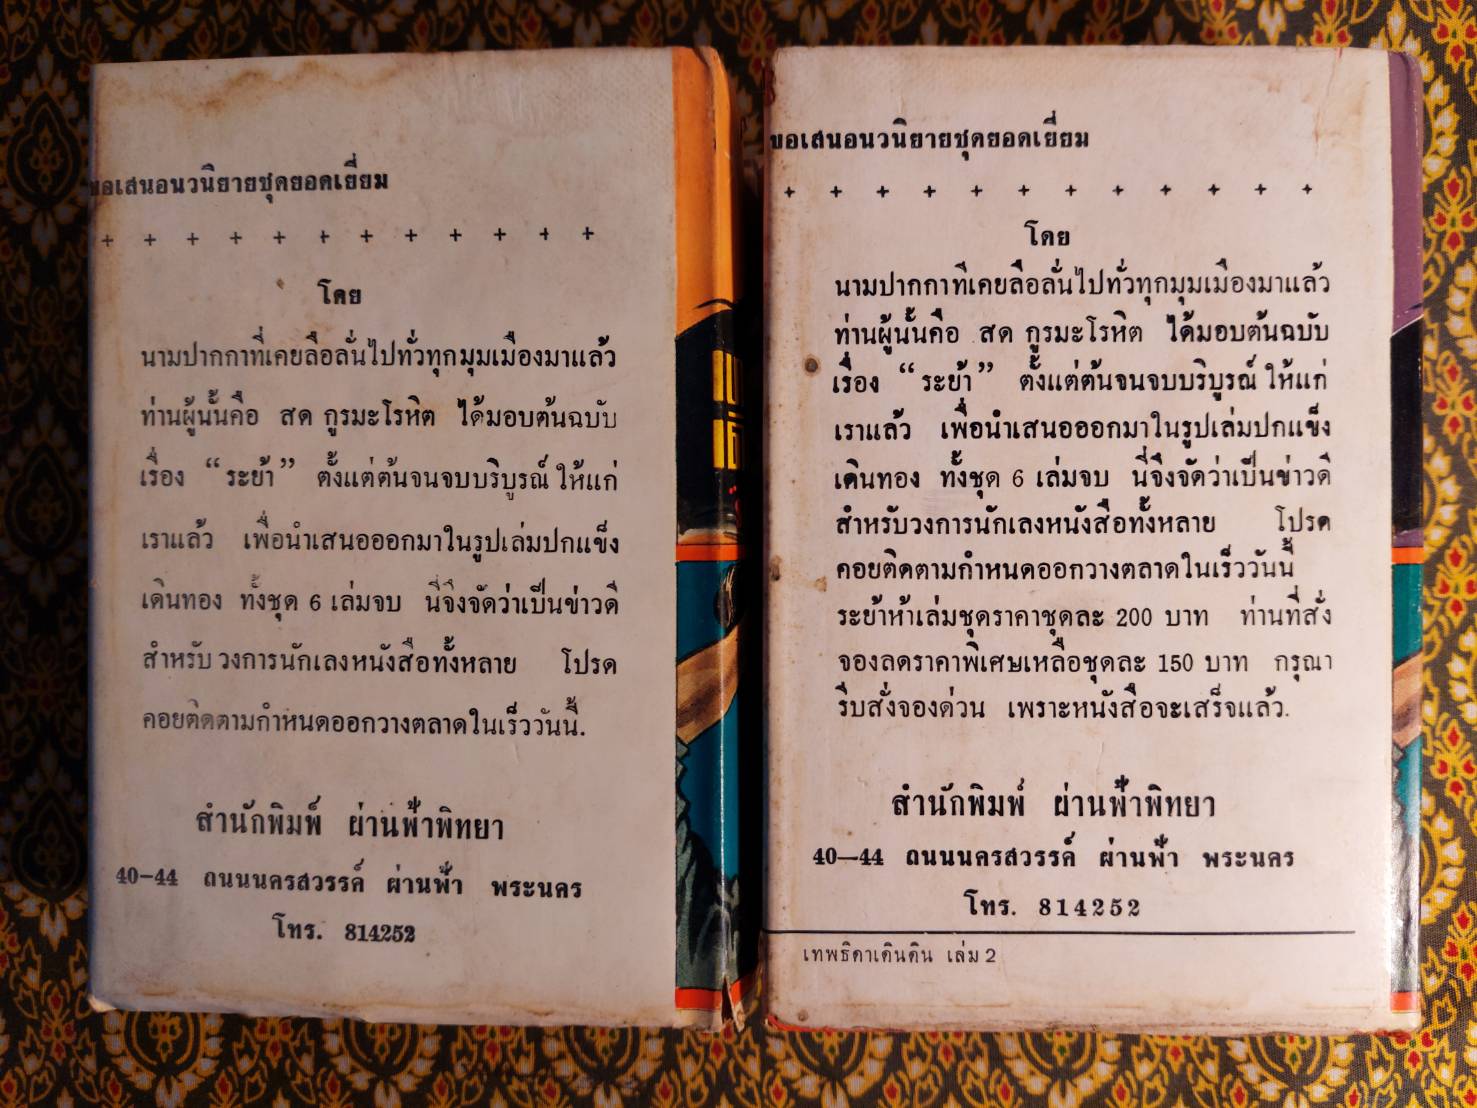 ขอเสนอนวนิยายชุดยอดเยี่ยม
+ + + + + + + + + + + +
โดย
นามปากกาที่เคยลือลั่นไปทั่วทุกมุมเมืองมาแล้ว
ท่านผู้นั้นคือ สด กูรมะโรหิต ได้มอบต้นฉบับ
เรื่อง “ระย้า” ตั้งแต่ต้นจนจบบริบูรณ์ ให้แก่
เราแล้ว เพื่อนำเสนอออกมาในรูปเล่มปกแข็ง
เดินทอง ทั้งชุด 6 เล่มจบ นี่จึงจัดว่าเป็นข่าวดี
สำหรับวงการนักเลงหนังสือทั้งหลาย โปรด
คอยติดตามกำหนดออกวางตลาดในเร็ววันนี้.
สำนักพิมพ์ ผ่านฟ้าพิทยา
40-44 ถนนนครสวรรค์ ผ่านฟ้า พระนคร
โทร. 814252
ขอเสนอนวนิยายชุดยอดเยี่ยม
+ + + + + + + + + + + +
โดย
นามปากกาที่เคยลือลั่นไปทั่วทุกมุมเมืองมาแล้ว
ท่านผู้นั้นคือ สด กูรมะโรหิต ได้มอบต้นฉบับ
เรื่อง “ระย้า” ตั้งแต่ต้นจนจบบริบูรณ์ ให้แก่
เราแล้ว เพื่อนำเสนอออกมาในรูปเล่มปกแข็ง
เดินทอง ทั้งชุด 6 เล่มจบ นี่จึงจัดว่าเป็นข่าวดี
สำหรับวงการนักเลงหนังสือทั้งหลาย โปรด
คอยติดตามกำหนดออกวางตลาดในเร็ววันนี้
ระย้าห้าเล่มชุดราคาชุดละ 200 บาท ท่านที่สั่ง
จองลดราคาพิเศษเหลือชุดละ 150 บาท กรุณา
รีบสั่งจองด่วน เพราะหนังสือจะเสร็จแล้ว.
สำนักพิมพ์ ผ่านฟ้าพิทยา
40—44 ถนนนครสวรรค์ ผ่านฟ้า พระนคร
โทร. 814252
เทพธิดาเดินดิน เล่ม 2